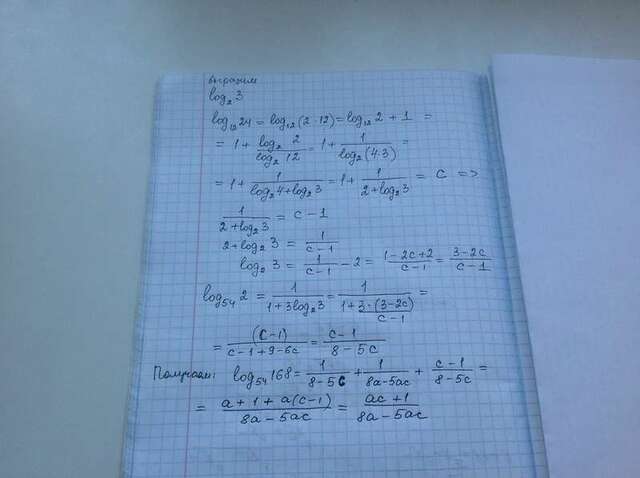 выразим
log₂3
log₁₂24 = log₁₂(2·12) = log₁₂2 + 1 =
= 1 + log₂ 2 / log₂ 12 = 1 + 1 / log₂(4·3) =
= 1 + 1 / (log₂4 + log₂3) = 1 + 1 / (2 + log₂3) = c =>
1 / (2 + log₂3) = c − 1
2 + log₂3 = 1 / (c − 1)
log₂3 = 1 / (c − 1) − 2 = (1 − 2c + 2) / (c − 1) = (3 − 2c) / (c − 1)
log₅₄2 = 1 / (1 + 3log₂3) = 1 / (1 + 3·(3 − 2c) / (c − 1)) =
= (c − 1) / (c − 1 + 9 − 6c) = (c − 1) / (8 − 5c)
Получаем: log₅₄168 = 1 / (8 − 5c) + 1 / (8a − 5ac) + (c − 1) / (8 − 5c) =
= (a + 1 + a(c − 1)) / (8a − 5ac) = (ac + 1) / (8a − 5ac)